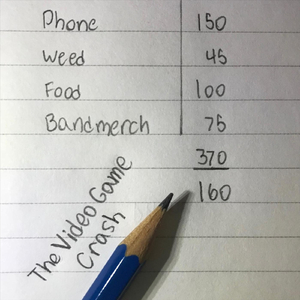 Phone 150
Weed 45
Food 100
Bandmerch 75
370
160
The Video Game
Crash